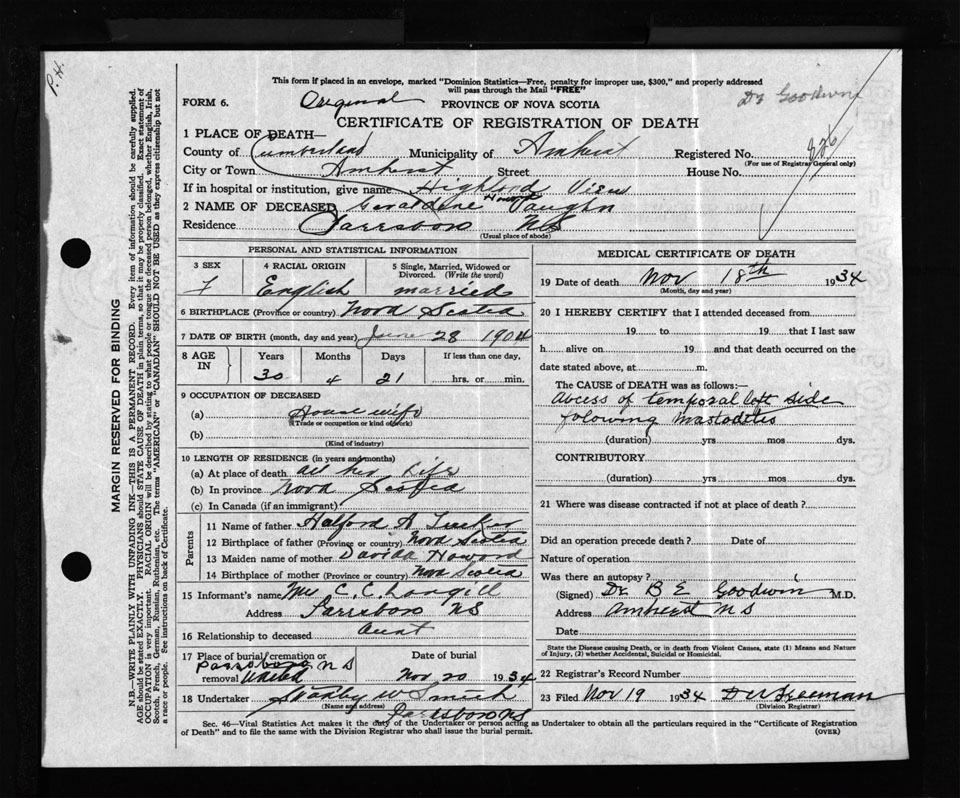 P. H.
This form if placed in an envelope, marked "Dominion Statistics—Free, penalty for improper use, $300," and properly addressed
will pass through the Mail "FREE"
FORM 6. Original PROVINCE OF NOVA SCOTIA
Dr Goodwin
CERTIFICATE OF REGISTRATION OF DEATH
826
1 PLACE OF DEATH—
County of Cumberland Municipality of Amherst Registered No.
(For use of Registrar General only)
City or Town Amherst Street House No.
If in hospital or institution, give name Highland View
2 NAME OF DECEASED Geraldine Howard Vaughn
Residence Parrsboro NS
(Usual place of abode)
PERSONAL AND STATISTICAL INFORMATION
3 SEX 4 RACIAL ORIGIN 5 Single, Married, Widowed or
Divorced. (Write the word)
F English married
6 BIRTHPLACE (Province or country) Nova Scotia
7 DATE OF BIRTH (month, day and year) June 28 1904
8 AGE IN Years Months Days If less than one day,
30 4 21 hrs. or min.
9 OCCUPATION OF DECEASED
(a) House wife
(Trade or occupation or kind of work)
(b)
(Kind of industry)
10 LENGTH OF RESIDENCE (in years and months)
(a) At place of death all her Life
(b) In province Nova Scotia
(c) In Canada (if an immigrant)
Parents
11 Name of father Halford A Tucker
12 Birthplace of father (Province or country) Nova Scotia
13 Maiden name of mother Davida Howard
14 Birthplace of mother (Province or country) Nova Scotia
15 Informant's name Mrs C. C. Langill
Address Parrsboro NS
16 Relationship to deceased Aunt
17 Place of burial/cremation or removal Date of burial
Parrsboro, NS
United Nov 20 1934
18 Undertaker Stanley W Smith
(Name and address)
Parrsboro NS
MEDICAL CERTIFICATE OF DEATH
19 Date of death Nov 18th 1934
(Month, day and year)
20 I HEREBY CERTIFY that I attended deceased from
19 to 19 that I last saw
h alive on 19 and that death occurred on the
date stated above, at m.
The CAUSE OF DEATH was as follows:—
Abcess of temporal left side
following Mastoditis
(duration) yrs mos dys.
CONTRIBUTORY
(duration) yrs mos dys.
21 Where was disease contracted if not at place of death?
Did an operation precede death? Date of
Nature of operation
Was there an autopsy?
(Signed) Dr. B E Goodwin M.D.
Address Amherst N S
Date
State the Disease causing Death, or in death from Violent Causes, state (1) Means and Nature
of Injury, (2) whether Accidental, Suicidal or Homicidal.
22 Registrar's Record Number
23 Filed Nov 19 1934 Freeman
(Division Registrar)
Sec. 46—Vital Statistics Act makes it the duty of the Undertaker or person acting as Undertaker to obtain all the particulars required in the "Certificate of Registration
of Death" and to file the same with the Division Registrar who shall issue the burial permit. (OVER)
MARGIN RESERVED FOR BINDING
N.B.—WRITE PLAINLY WITH UNFADING INK—THIS IS A PERMANENT RECORD. Every item of information should be carefully supplied.
AGE should be stated EXACTLY. PHYSICIANS should STATE CAUSE OF DEATH in plain terms, so that it may be properly classified. Exact statement of
OCCUPATION is very important. RACIAL ORIGIN will be described by stating to what people or tongue the deceased person belonged, whether English, Irish,
Scotch, French, German, Russian, Ruthenian, etc. The terms "AMERICAN" or "CANADIAN" SHOULD NOT BE USED as they express citizenship but not
a race or people. See instructions on back of Certificate.